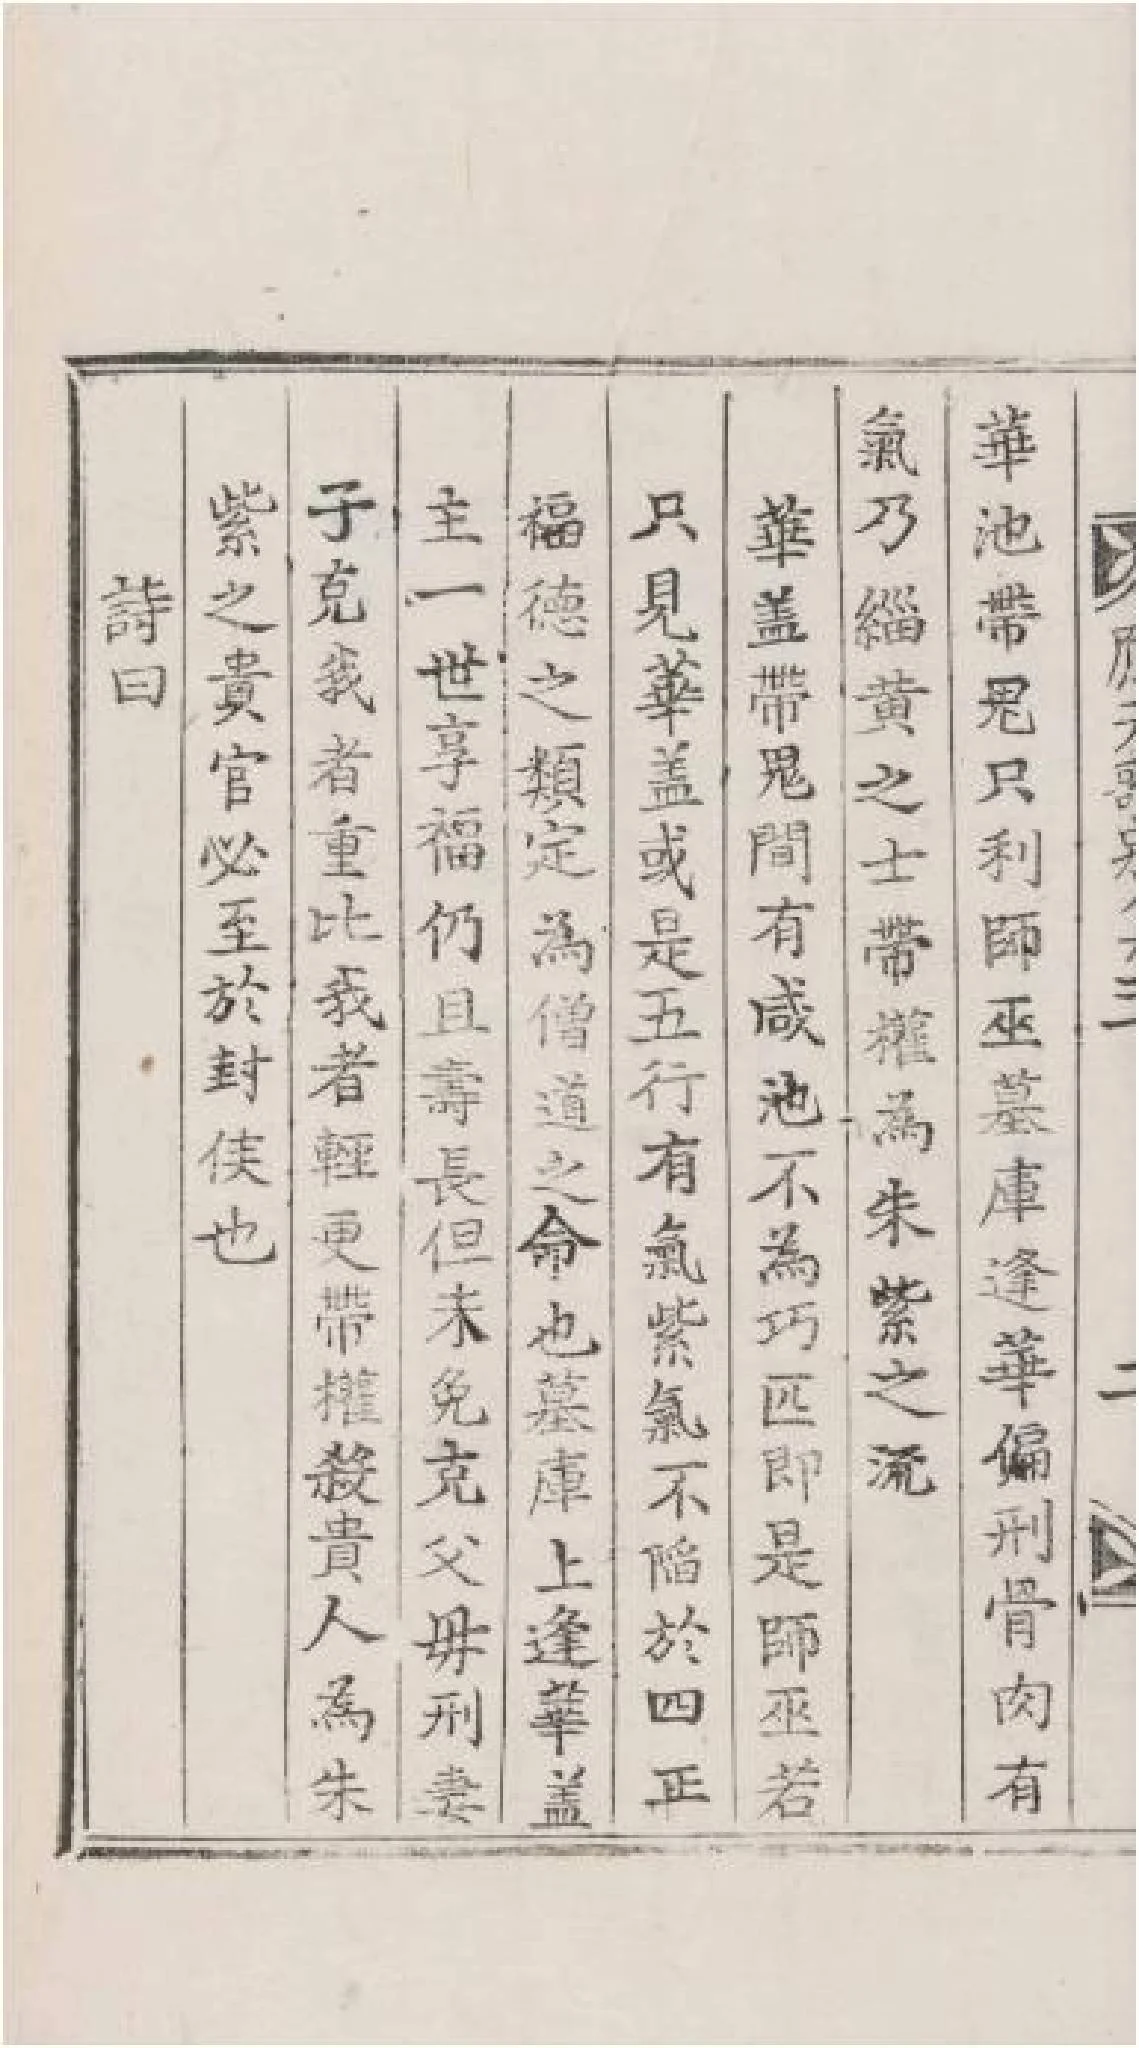 華池帶鬼只利師巫墓庫逢華偏刑骨肉有
氣乃緇黄之士帶權為朱紫之流
華盖帶鬼間有咸池不為巧匹即是師巫若
只見華盖或是五行有氣紫氣不陷於四正
福德之類定為僧道之命也墓庫上逢華盖
主一世享福仍且壽長但未免克父毋刑妻
子克我者重比我者輕更帶權殺貴人為朱
紫之貴官必至於封侯也
詩曰